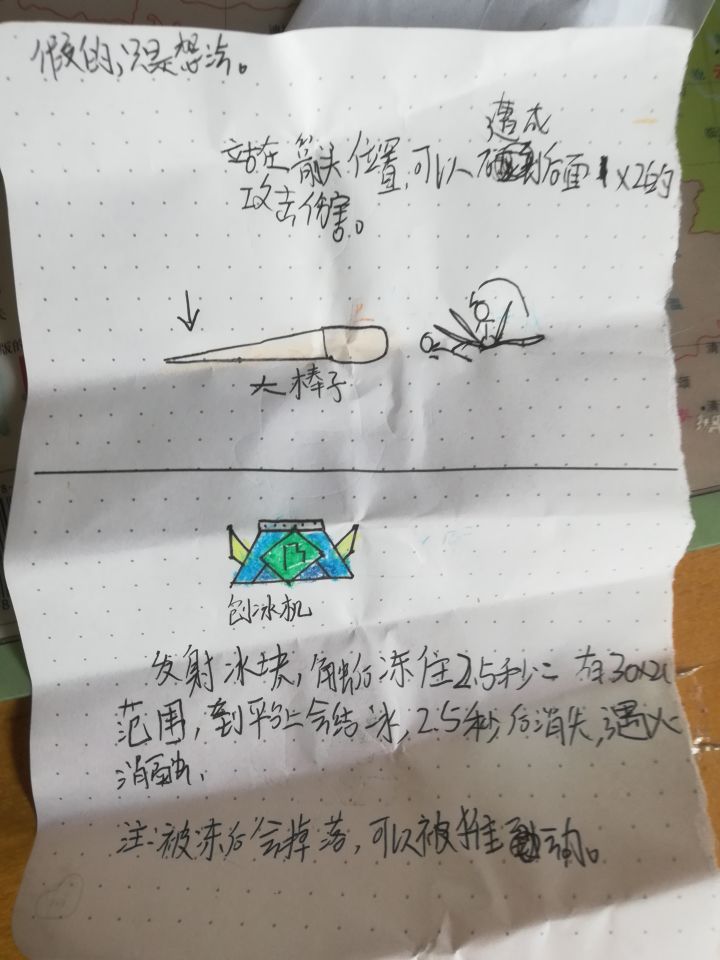 假的,只是想法。
造成
站在箭头位置,可以后面1×2的
攻击伤害。
大棒子
刨冰机
发射冰块,触后冻住2.5秒二有30×2
范围,到平台上会结冰,2.5秒后消失,遇火
消融,
注:被冻后会掉落,可以被推动。